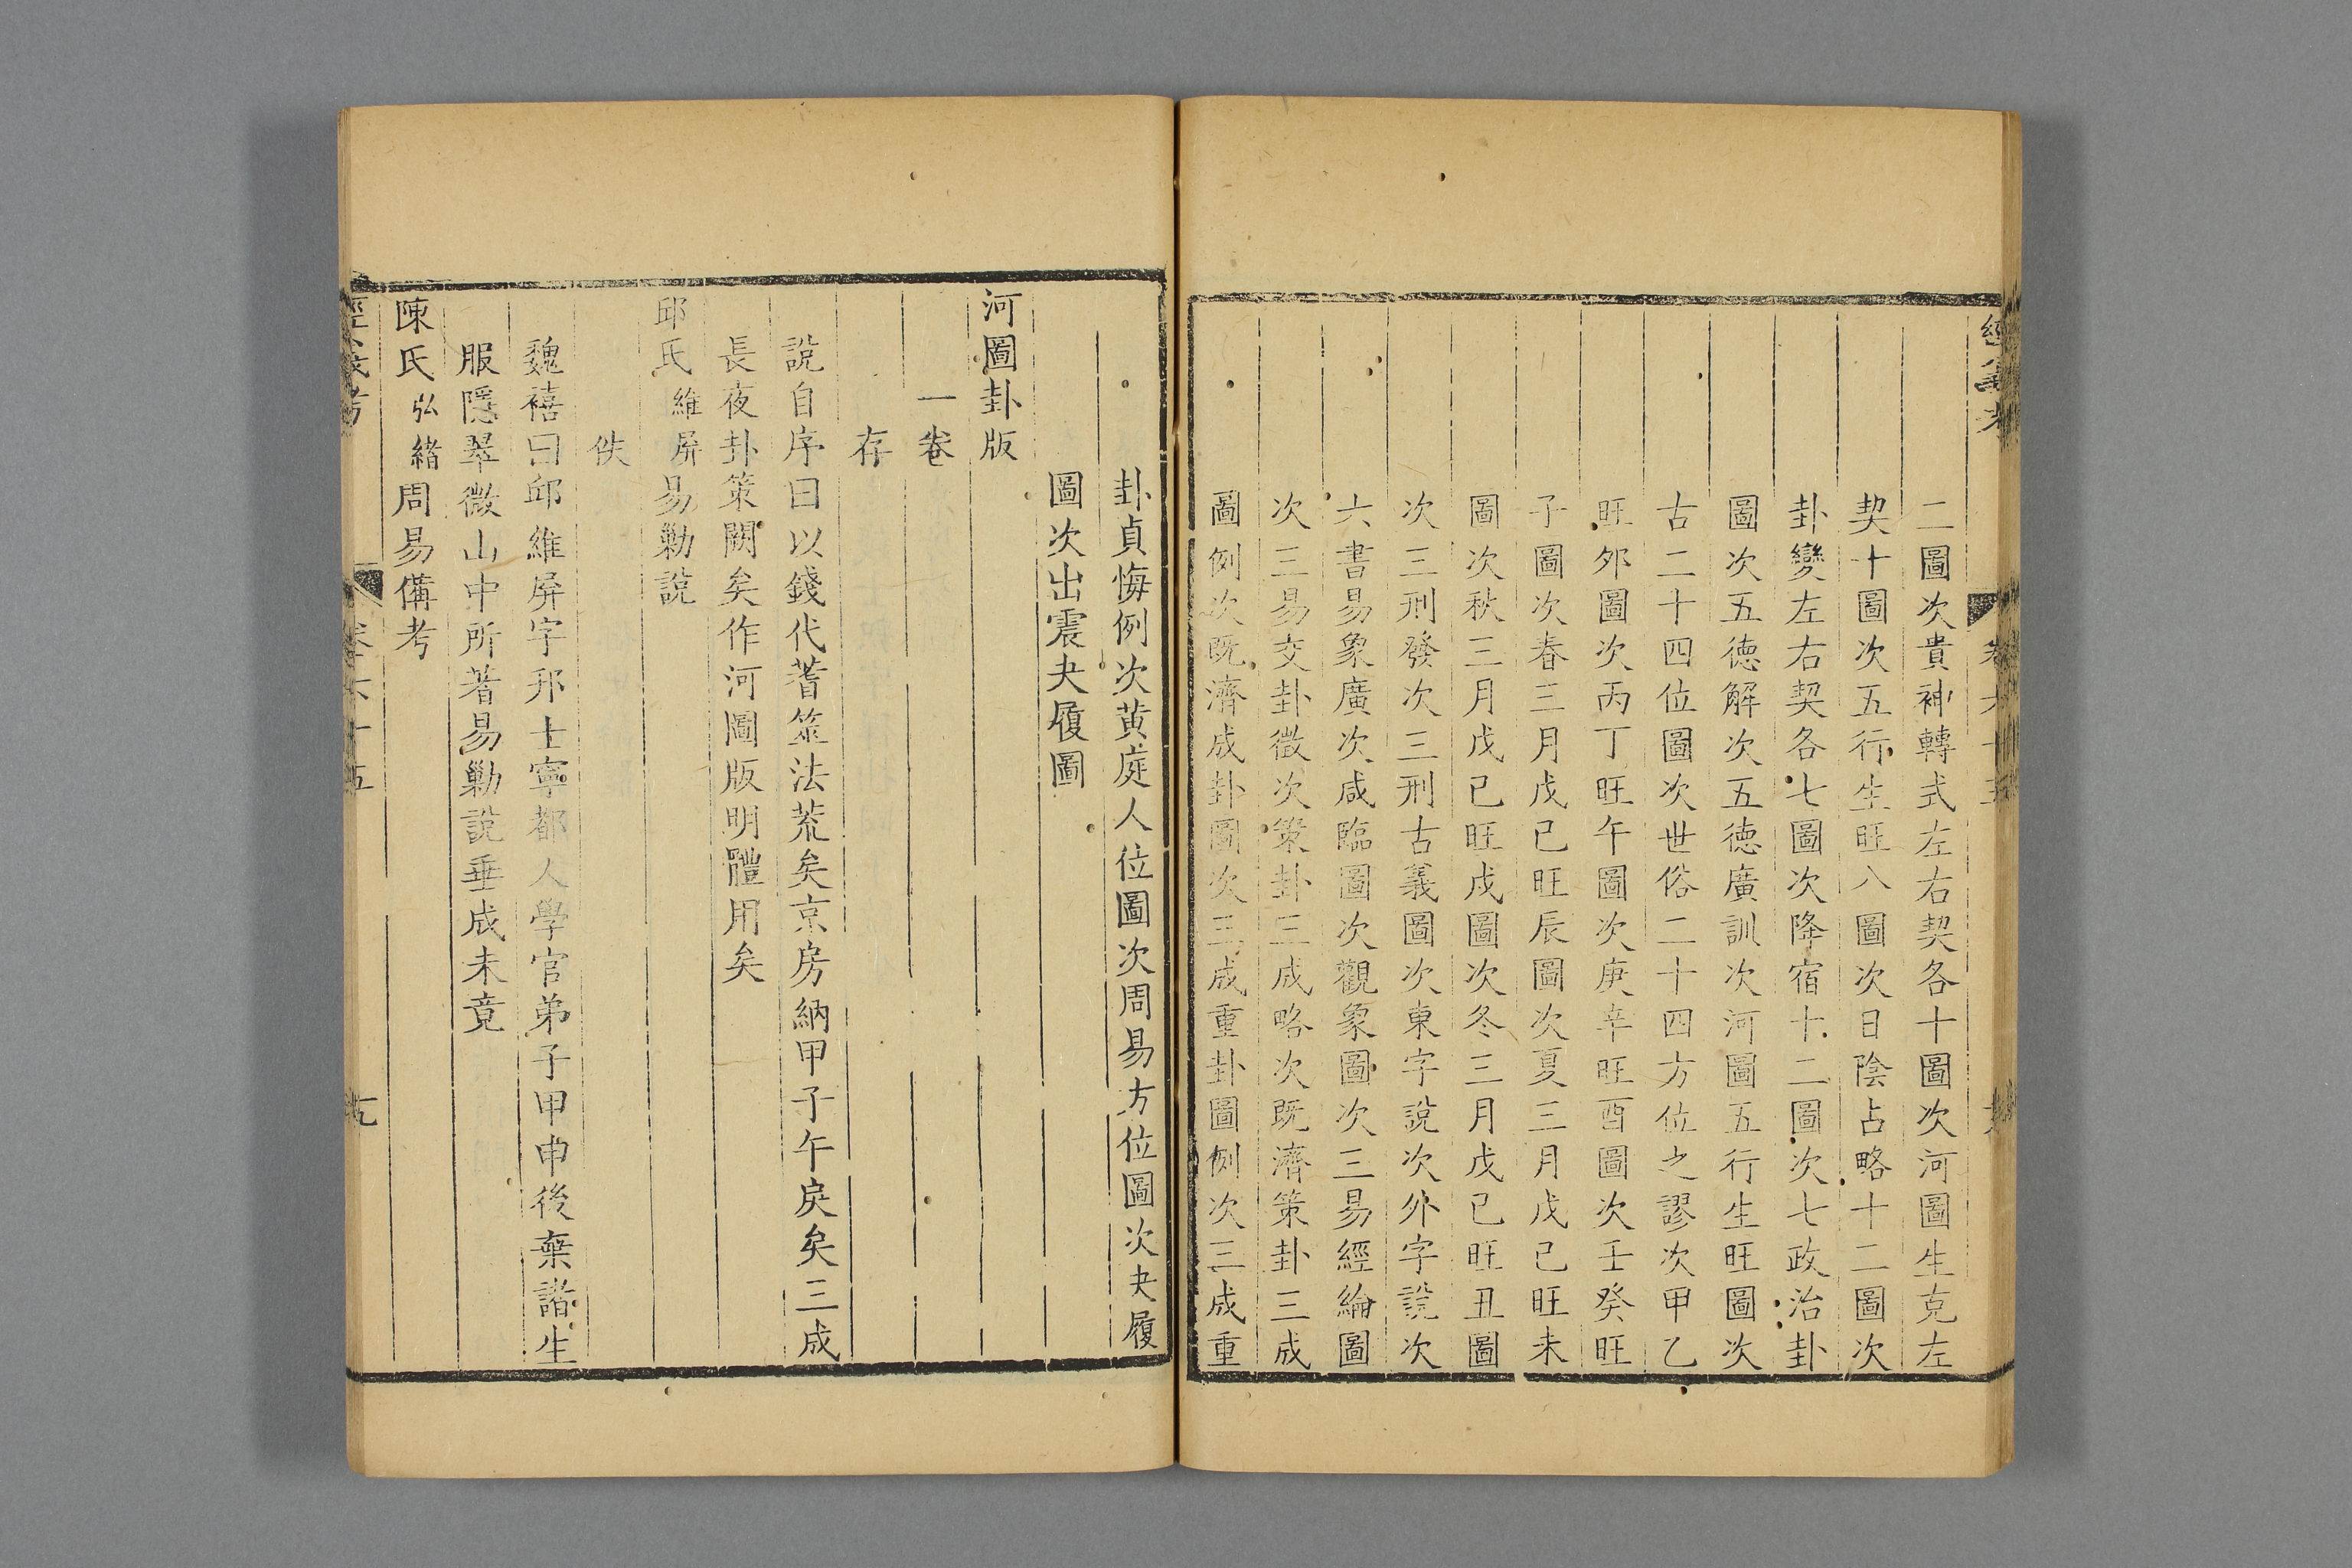 經義考
卷六十五
二圖次貴神轉式左右契各十圖次河圖生克左
契十圖次五行生旺八圖次日陰占略十二圖次
卦變左右契各七圖次降宿十二圖次七政治卦
圖次五德解次五德廣訓次河圖五行生旺圖次
古二十四位圖次世俗二十四方位之謬次甲乙
旺夘圖次丙丁旺午圖次庚辛旺酉圖次壬癸旺
子圖次春三月戊己旺辰圖次夏三月戊己旺未
圖次秋三月戊己旺戌圖次冬三月戊己旺丑圖
次三刑發次三刑古義圖次東字說次外字說次
六書易象廣次咸臨圖次觀象圖次三易經綸圖
次三易交卦徵次策卦三成略次既濟策卦三成
圖例次既濟成卦圖次三成重卦圖例次三成重
卦貞悔例次黄庭人位圖次周易方位圖次夬履
圖次出震夬履圖
河圖卦版
一卷
存
說自序曰以錢代蓍筮法荒矣京房納甲子午戾矣三成
長夜卦策闕矣作河圖版明體用矣
邱氏維屏易勦說
佚
魏禧曰邱維屏字邦士寧都人學官弟子甲申後棄諸生
服隱翠微山中所著易勦說垂成未竟
陳氏弘緒周易備考
經義考
卷六十五